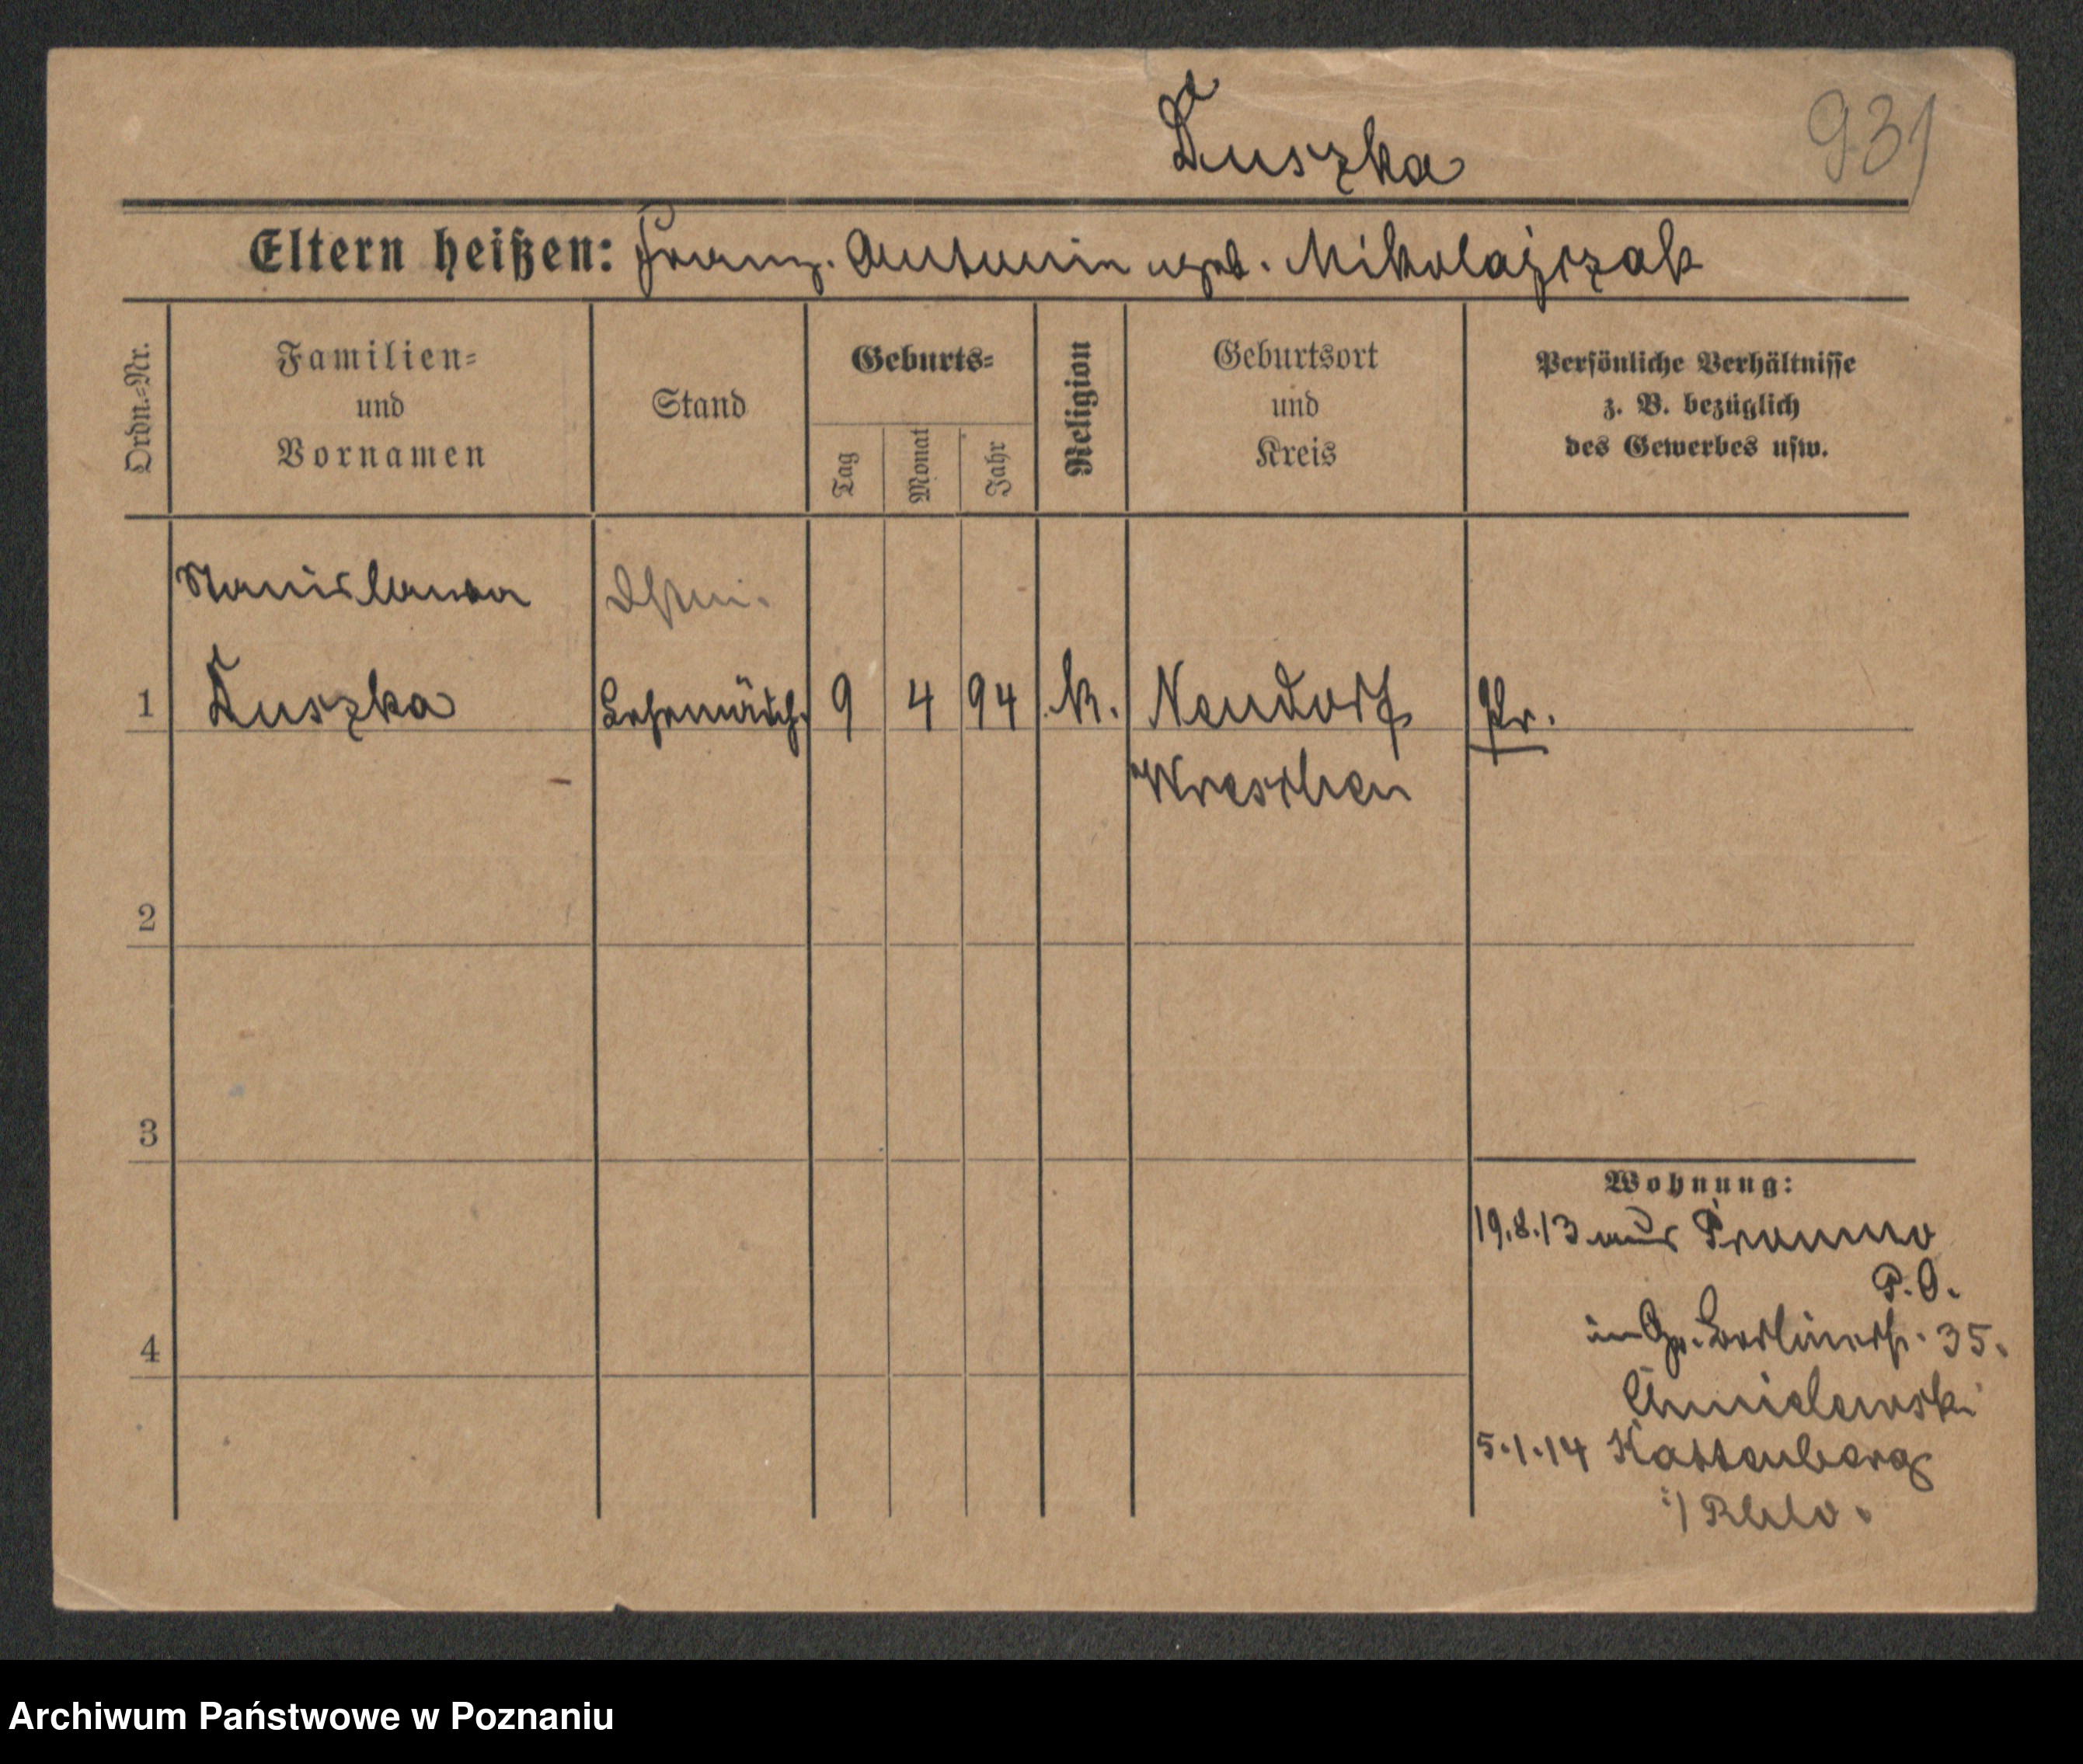 Duszka
931
Eltern heißen: Franz. Antonin geb. Mikolajczak
Ordn.-Nr.
Familien-
und
Vornamen
Stand
Geburts-
Tag
Monat
Jahr
Religion
Geburtsort
und
Kreis
Persönliche Verhältnisse
z. B. bezüglich
des Gewerbes usw.
Stanislawa
1 Duszka Lehrmädch. 9 4 94 k. Neudorf Pr.
Wreschen
2
3
4
Wohnung:
19.8.13 aus Promno
P.O.
in Berlinerstr. 35.
Chmielewski
5.1.14 Kattenberg
Archiwum Państwowe w Poznaniu